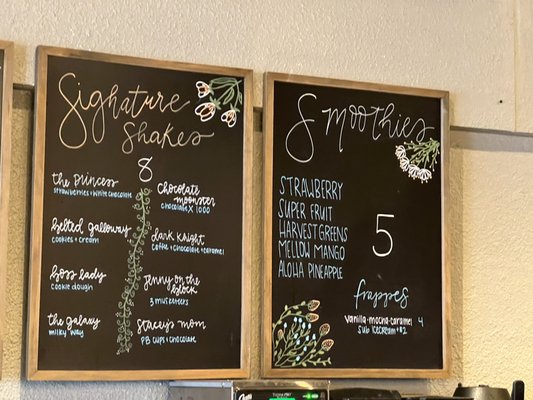 Signature
Shakes
8
the princess
strawberries + white chocolate
belted galloway
cookies + cream
boss lady
cookie dough
the galaxy
milky way
Chocolate
moonster
chocolate X 1000
dark knight
coffee + chocolate + caramel
Jenny on the
block
3 musketeers
Stacy's mom
PB cups + chocolate
Smoothies
STRAWBERRY
SUPER FRUIT
HARVEST GREENS
MELLOW MANGO
ALOHA PINEAPPLE
5
frappes
vanilla-mocha-caramel 4
sub icecream +$2